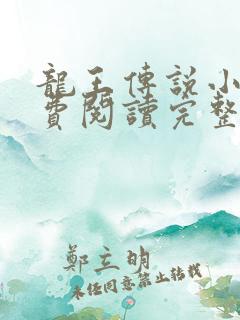 龍王傳說小
費閱讀完整
鄭立明
未經同意禁止轉載